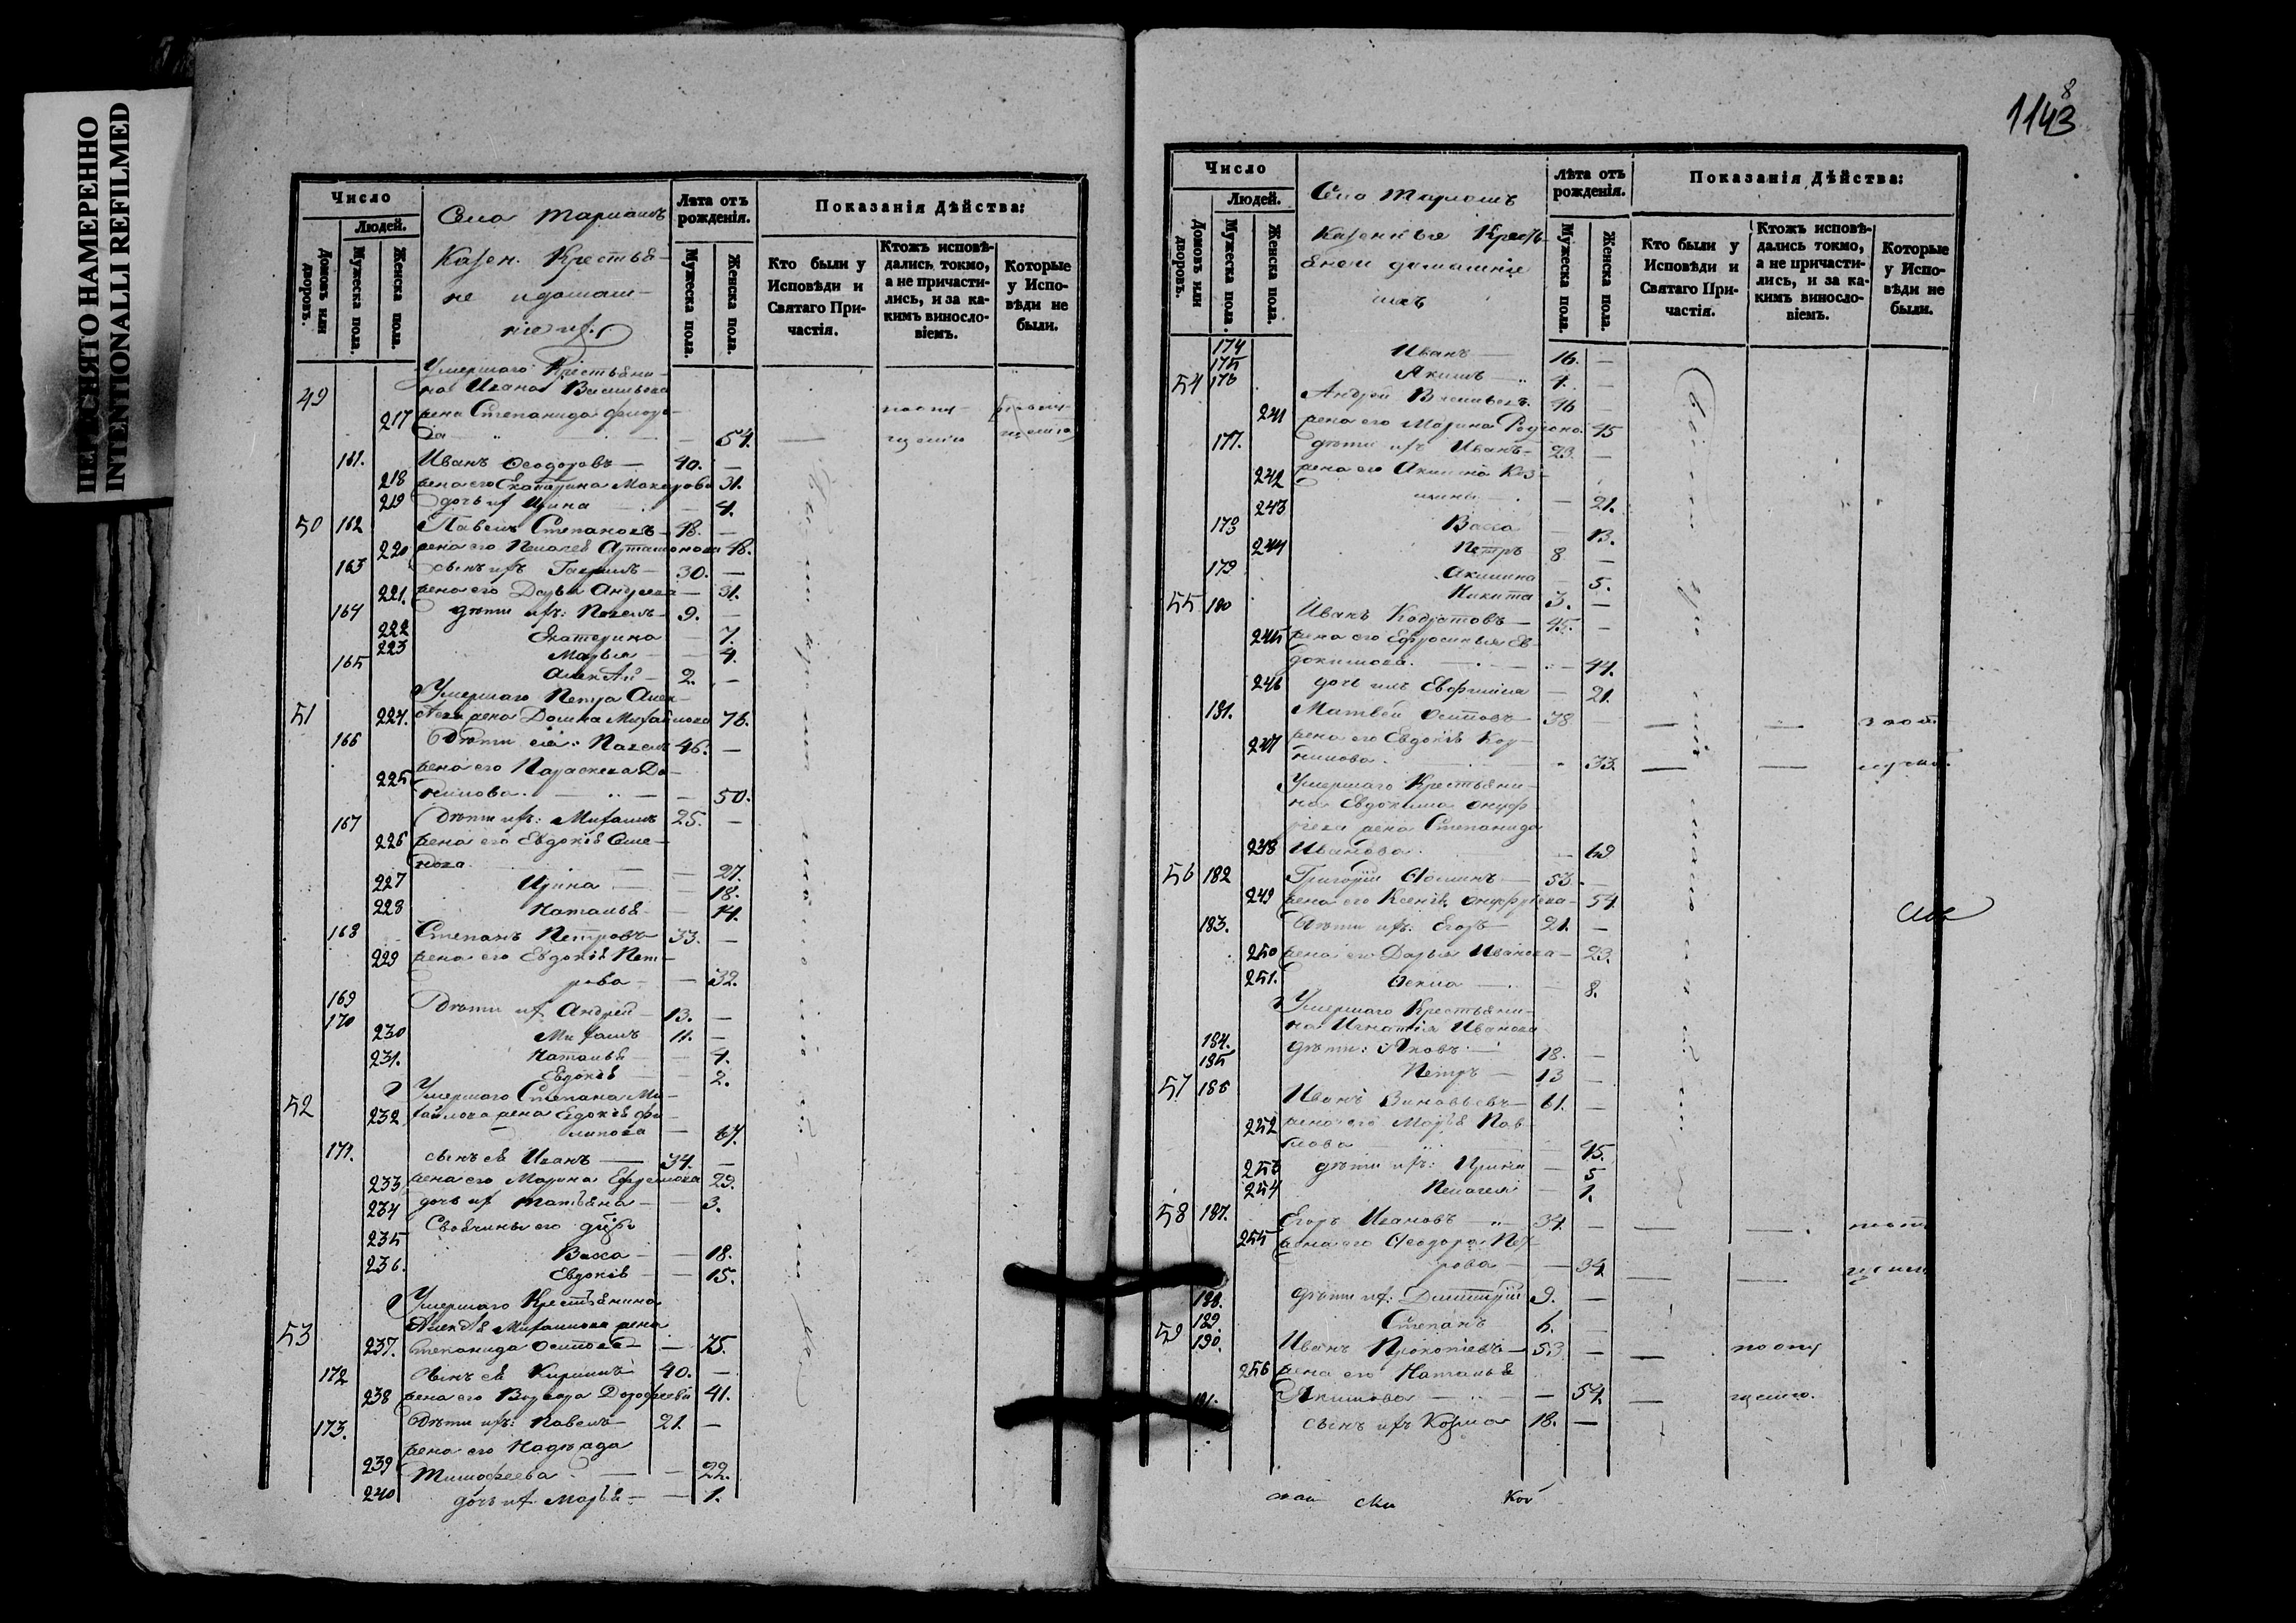 ПЕРЕСНЯТО НАМЕРЕННО
INTENTIONALLI REFILMED
Число
Людей.
Домовъ или дворовъ.
Мужеска пола.
Женска пола.
Казен. Крестья-
не
Лѣта отъ рожденія.
Мужеска пола.
Женска пола.
Показанія Дѣйства:
Кто были у Исповѣди и Святаго При-частія.
Ктожъ исповѣ-дались токмо, а не причасти-лись, и за ка-кимъ винословіемъ.
Которые у Испо-вѣди не были.
Умершаго Крестьяни-
49 на Ивана Васильева
217 жена Степанида
54.
161. Иванъ Ѳеодоровъ 40. —
218 жена его Екатерина Макарова 31.
219 дочь их Ирина — 4.
50 162 Павелъ Степановъ 48. —
220 жена его Пелагея 48.
163 сынъ ихъ Гаврилъ 30. —
221. жена его Дарья Андреева — 31.
164 дѣти ихъ: Павелъ 9. —
222 Екатерина — 7.
223 Марья — 4.
165 Алексѣй 2. —
Умершаго Петра Алек-
51 224. сѣева жена Домна Михайлова 76.
166 Дѣти ея: Павелъ 46. —
жена его Параскева Да-
225 нилова. — 50.
167 Дѣти ихъ: Михаилъ 25. —
226 жена его Евдокія Семе-
нова — 27.
227 Ирина — 18.
228 Наталья — 14.
168 Степанъ Петровъ 33. —
229 жена его Евдокія Пет-
рова — 32.
169 Дѣти их Андрей 13. —
170 Михаилъ 11. —
230 Наталья — 4.
231. Евдокія — 2.
Умершаго Степана Ми-
52 232 хайлова жена Евдокія Фи-
липова — 67.
171. сынъ ея Иванъ 34. —
233 жена его Марина Ефремова 29.
234 дочь их Татьяна — 3.
его
235 Васса — 18.
236. Евдокія — 15.
Умершаго Крестьянина
Алексѣя Михаилова жена
53 237. Степанида Осипова — 75.
172 Сынъ ея Кирилъ 40. —
238 жена его Варвара Дорофеева 41.
173. Дѣти ихъ: Павелъ 21. —
жена его Надежда
239 Тимофеева — 22.
240 дочь их Марья — 1.
1143
8
Число
Людей.
Домовъ или дворовъ.
Мужеска пола.
Женска пола.
Казенные Кресть-
Лѣта отъ рожденія.
Мужеска пола.
Женска пола.
Показанія Дѣйства:
Кто были у Исповѣди и Святаго При-частія.
Ктожъ исповѣ-дались токмо, а не причасти-лись, и за ка-кимъ винословіемъ.
Которые у Испо-вѣди не были.
174 Иванъ 16. —
175 Акимъ 4. —
54 176 Андрей Васильевъ 46 —
241 жена его Марина Родіона 45
177. дѣти ихъ Иванъ 23. —
242 жена его Акилина Коз-
мина — 21.
243 Васса — 13.
178 Петръ 8. —
244 Акилина — 5.
179 Никита 3. —
55 180 Иванъ 45. —
245 жена его Ефросинья Ев-
докимова. — 44.
246 дочь — 21.
181. Матвѣй Осиповъ 38 —
247 жена его Евдокія Кор-
нилова. — 33.
Умершаго Крестьяни-
на Евдокима Онуф-
ріева жена Степанида
248 Иванова — 69
56 182 Григорій 53. —
249 жена его Ксенія Онуфріева — 54
183. Дѣти ихъ: Егоръ 21. —
250 жена его Дарья Иванова — 23.
251. Ѳекла — 8.
Умершаго Крестьяни-
на Игнатія Иванова
184. дѣти: Яковъ 18. —
185 Петръ 13 —
57 186 Иванъ Зиновьевъ 61. —
252 жена его Марья Пав-
лова — 45.
253 дѣти ихъ: Ирина — 5
254 Пелагея — 1.
58 187. Егоръ Ивановъ 34. —
255 жена его Ѳеодора Пет-
рова — 34
188. дѣти их: Димитрій 9. —
189. Степанъ 6. —
59 190. Иванъ Прокопіевъ 53 —
256 жена его Наталья
Якимова — 54.
191. сынъ ихъ Козма 18. —